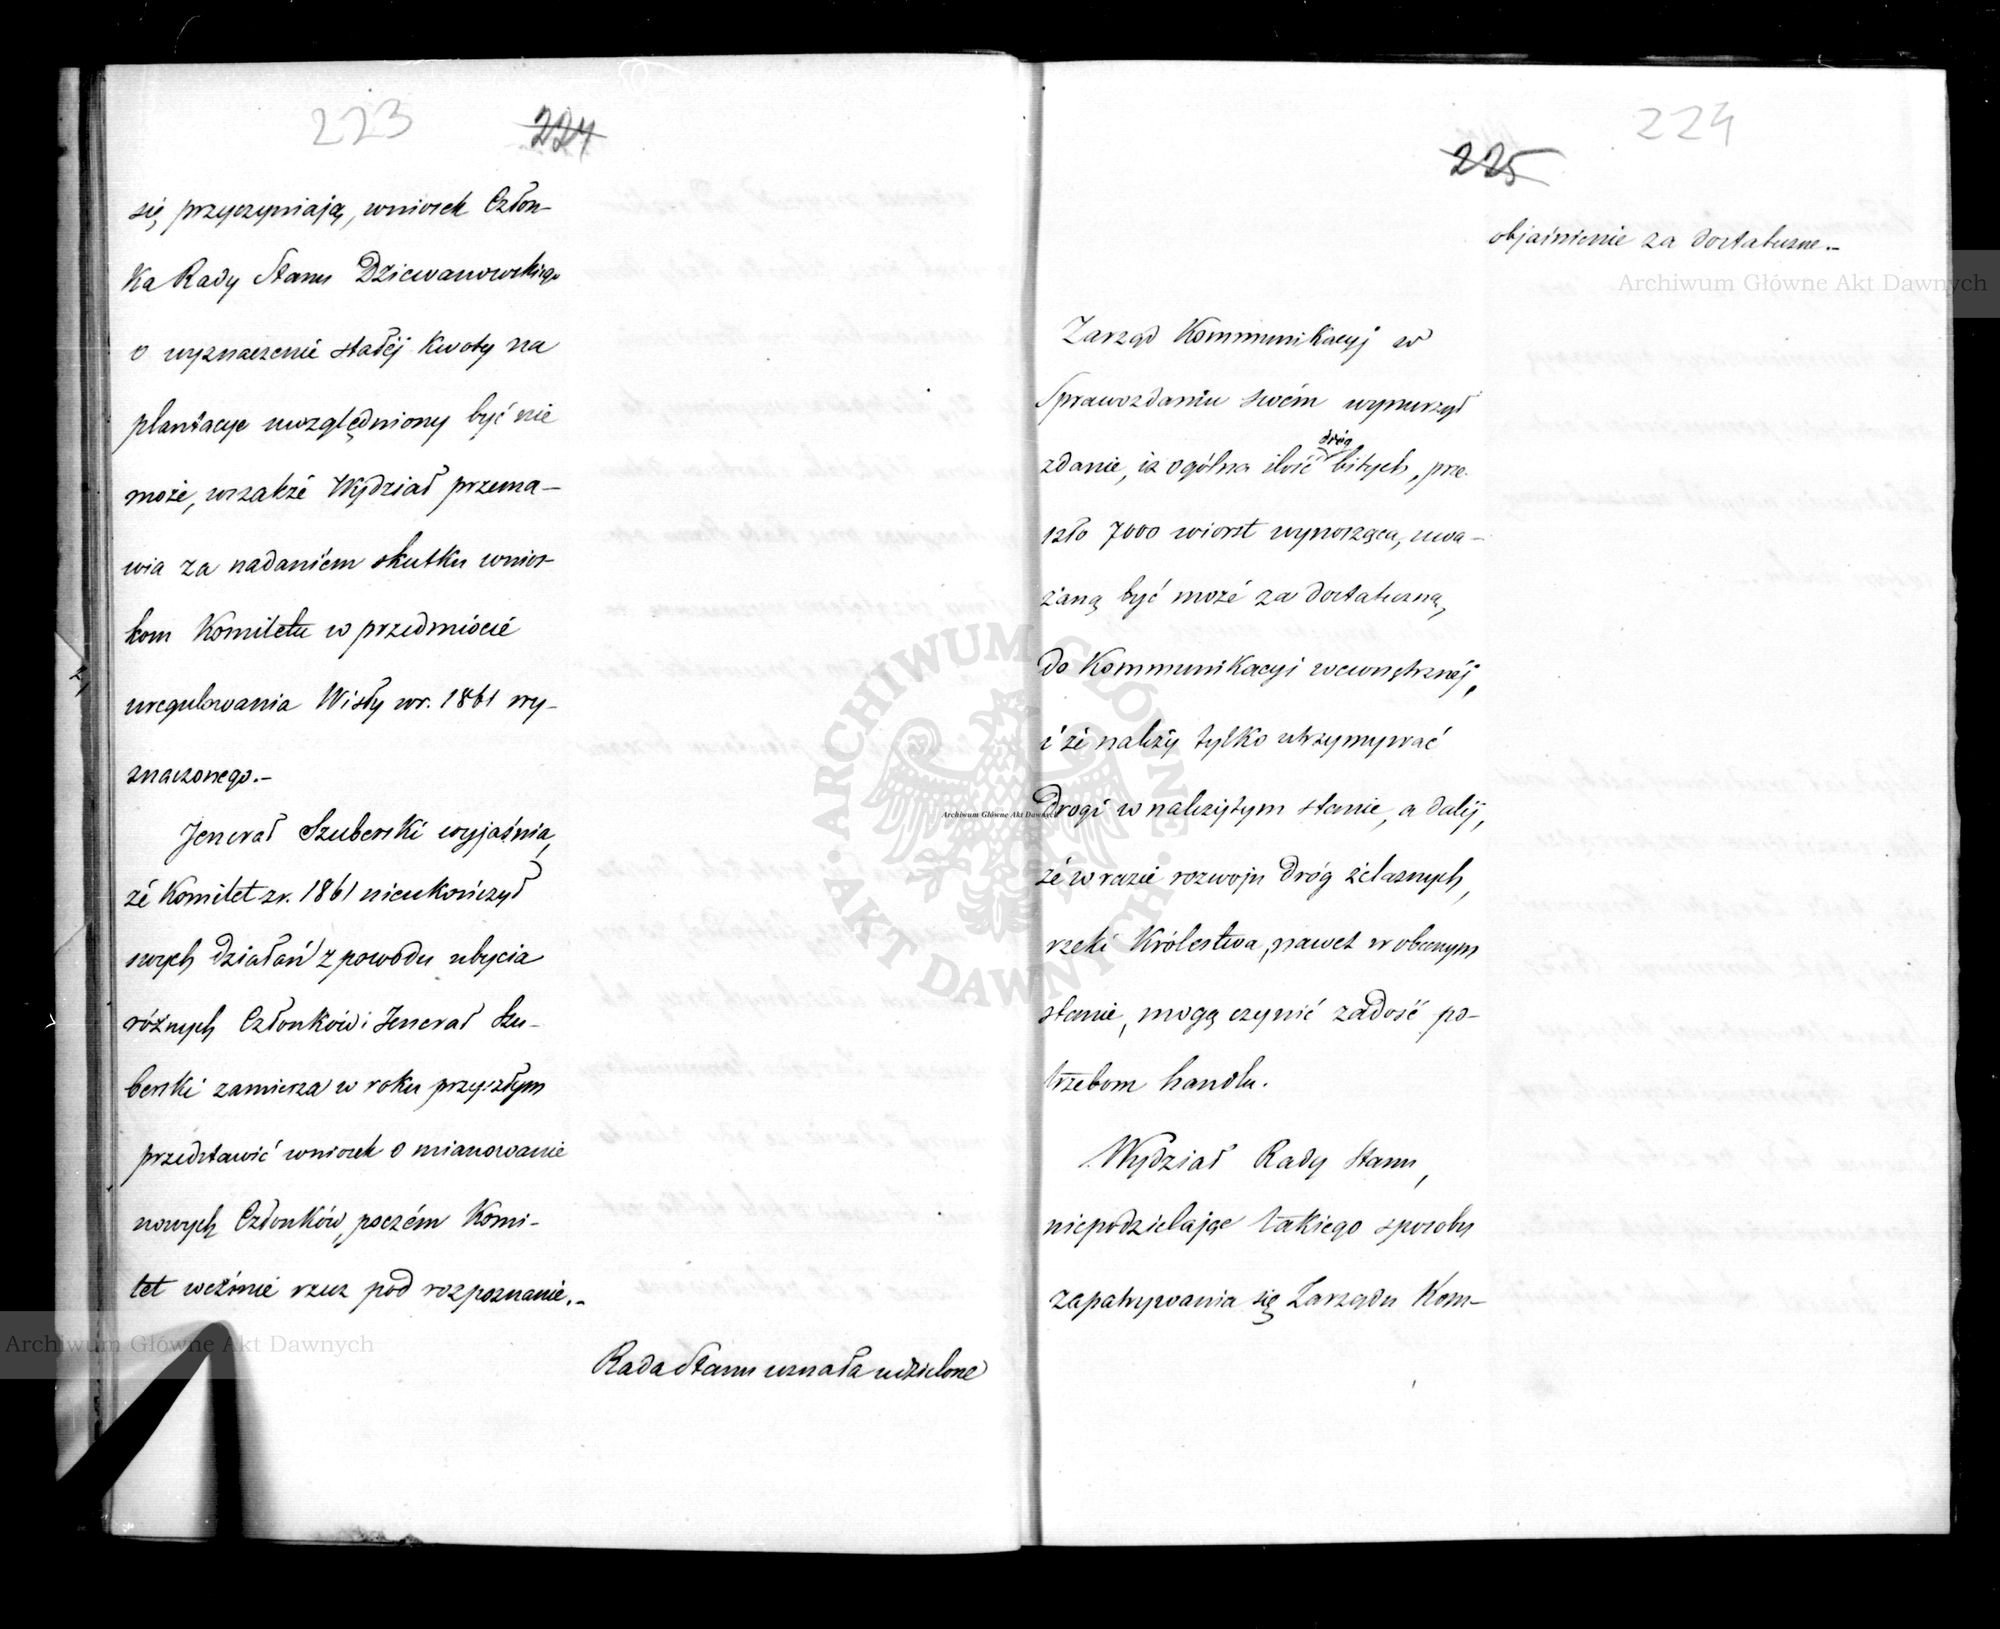 223
224
się przyczyniają, wniosek Człon-
ka Rady Stanu Dziewanowskiego
o wyznaczenie stałéj kwoty na
plantacye uwzględniony być nie
może, wszakże Wydział przema-
wia za nadaniem skutku wnios-
kom Komitetu w przedmiocie
uregulowania Wisły w r. 1861 wy-
znaczonego.-
Jenerał Szuberski wyjaśnia,
że Komitet z r. 1861 nieukończył
swych działań z powodu ubycia
różnych Członków i Jenerał Szu-
berski zamierza w roku przyszłym
przedstawić wniosek o mianowanie
nowych Członków, poczém Komi-
tet weźmie rzecz pod rozpoznanie.-
Rada Stanu uznała udzielone
224
225
objaśnienie za dostateczne.-
Zarząd Kommunikacyj w
Sprawozdaniu swém wynurzył
zdanie, iż ogólna ilość dróg bitych, prze-
szło 7000 wiorst wynosząca, uwa-
żaną być może za dostateczną,
do Kommunikacyi wewnętrznéj,
i że należy tylko utrzymywać
drogi w należytym stanie, a daléj,
że w razie rozwoju dróg żelaznych,
rzeki Królestwa, nawet w obecnym
stanie, mogą czynić zadość po-
trzebom handlu.
Wydział Rady Stanu,
niepodzielając takiego sposobu
zapatrywania się Zarządu Kom-
Archiwum Główne Akt Dawnych
Archiwum Główne Akt Dawnych
Archiwum Główne Akt Dawnych
ARCHIWUM GŁÓWNE
AKT DAWNYCH